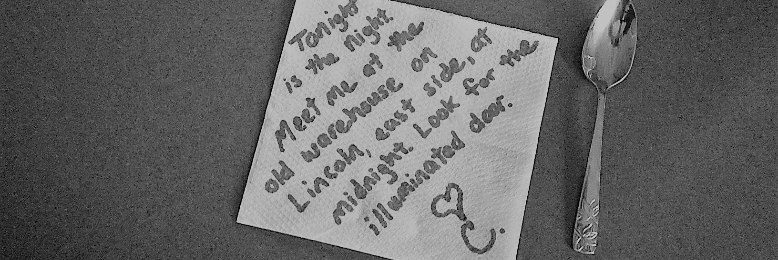 Tonight
is the night.
Meet me at the
old warehouse on
Lincoln, east side, at
midnight. Look for the
illuminated door.
♡
C.